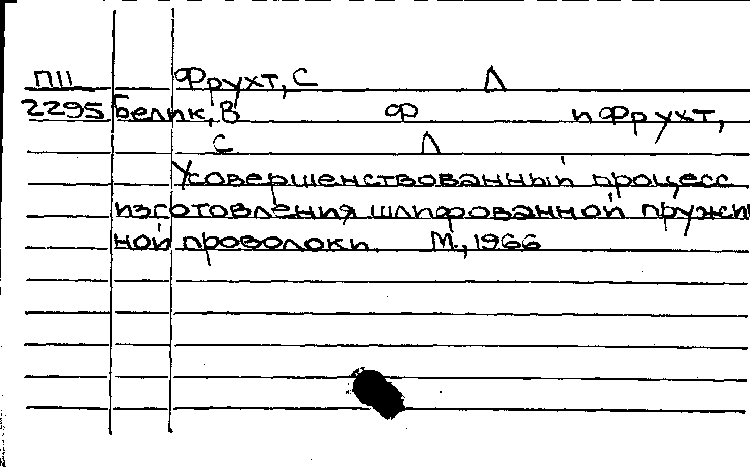 П11 Фрухт, С Л
2295 Белик, В Ф и Фрухт,
С Л
Усовершенствованный процесс
изготовления шлифованной пружин
ной проволоки. М., 1966